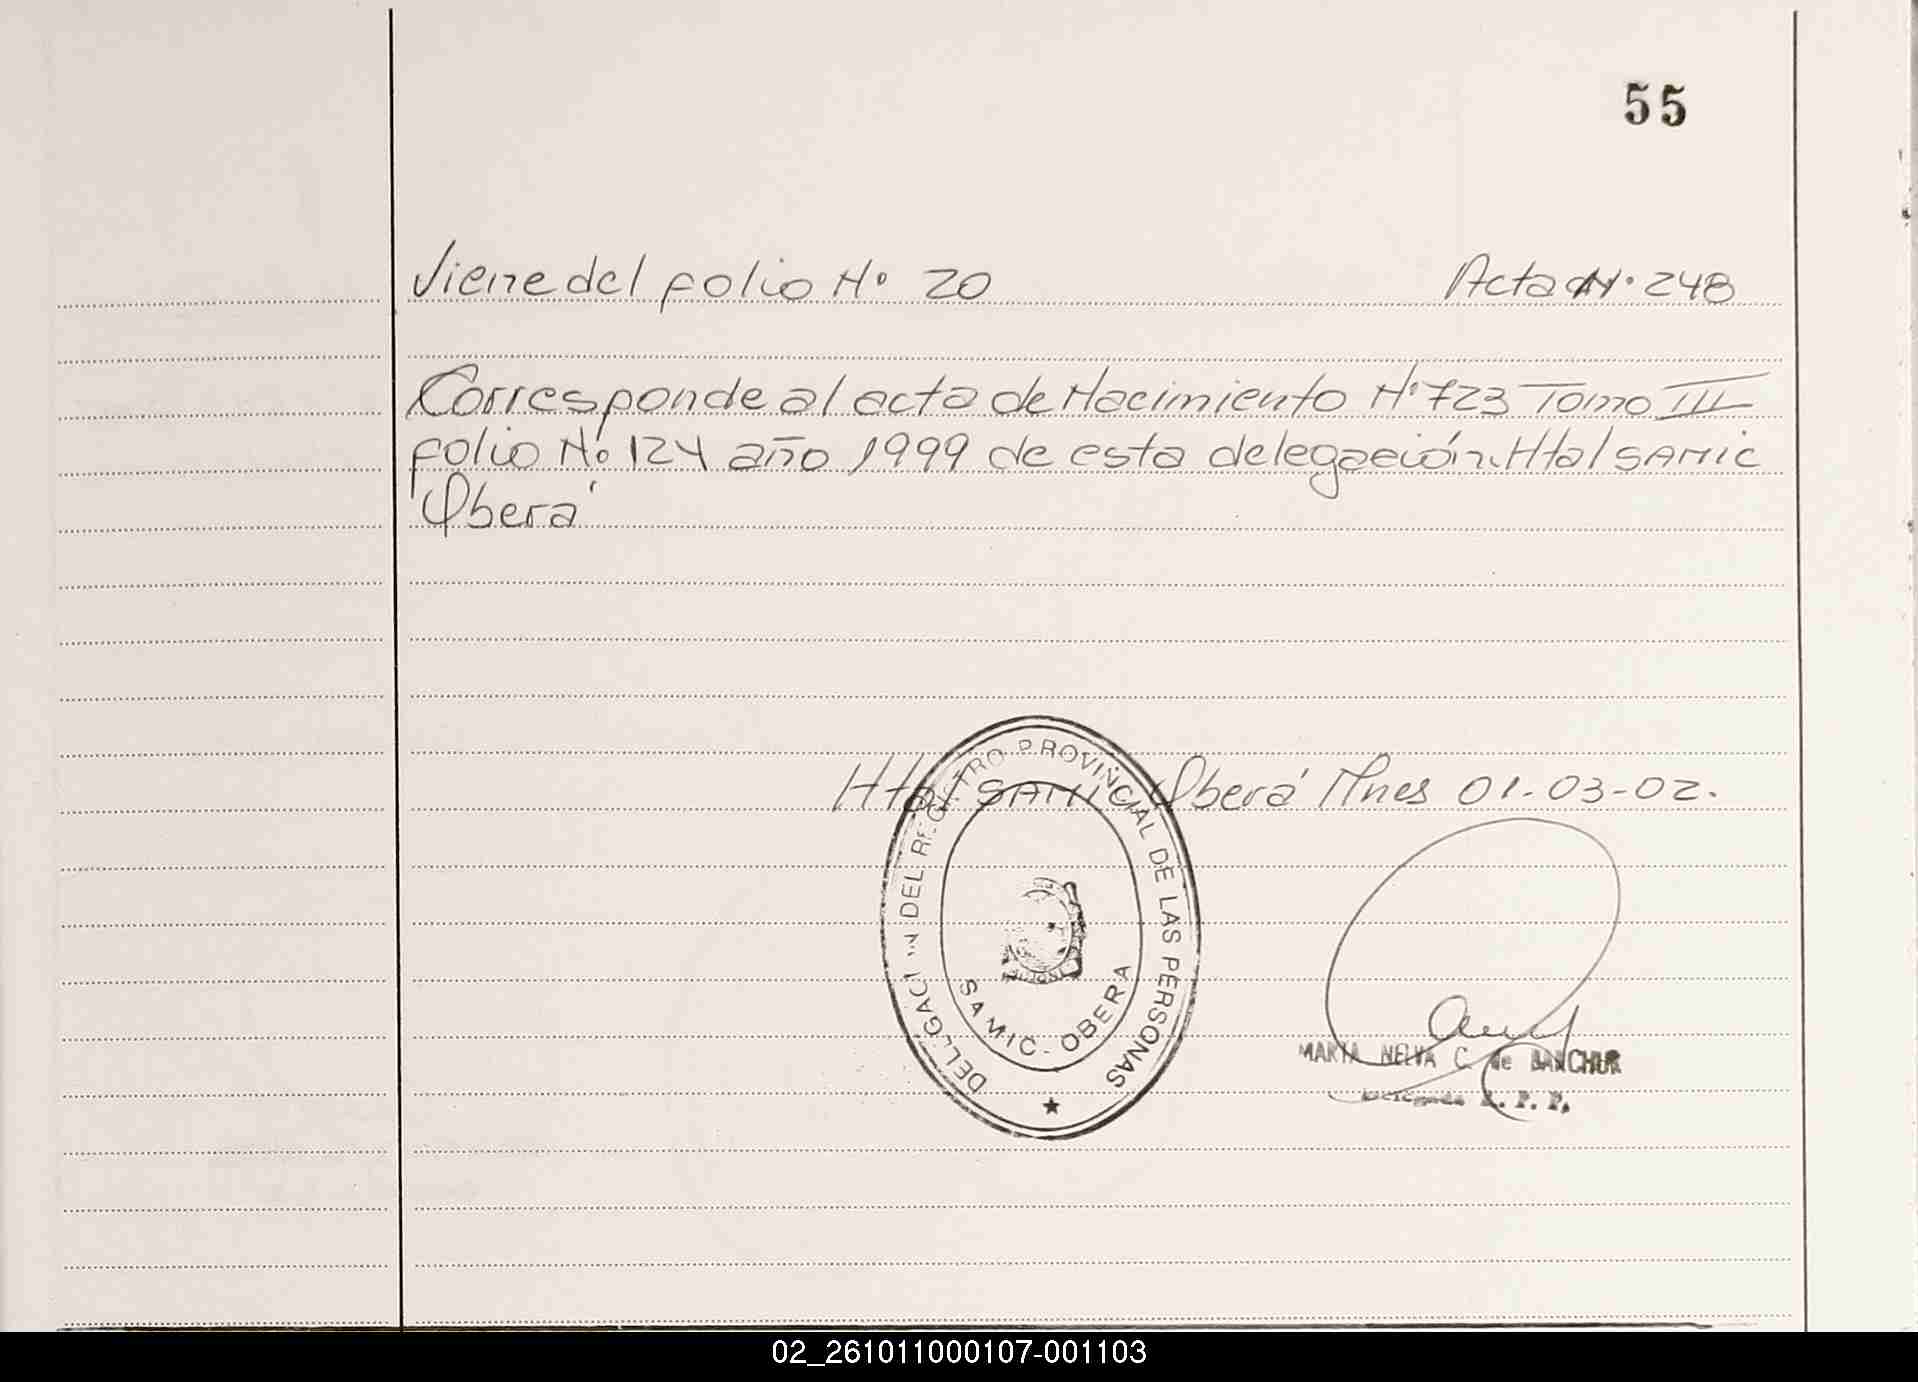 55
Viene del folio Nº 20 Acta Nº 248
Corresponde al acta de Nacimiento Nº 723 Tomo III
folio Nº 124 año 1999 de esta delegación Htal SAMIC
Oberá
Htal SAMIC Oberá Mnes 01-03-02.
DELEGACIÓN DEL REGISTRO PROVINCIAL DE LAS PERSONAS
SAMIC - OBERA
MARIA NELVA C. de BANCHUR
R. P. P.
02_261011000107-001103